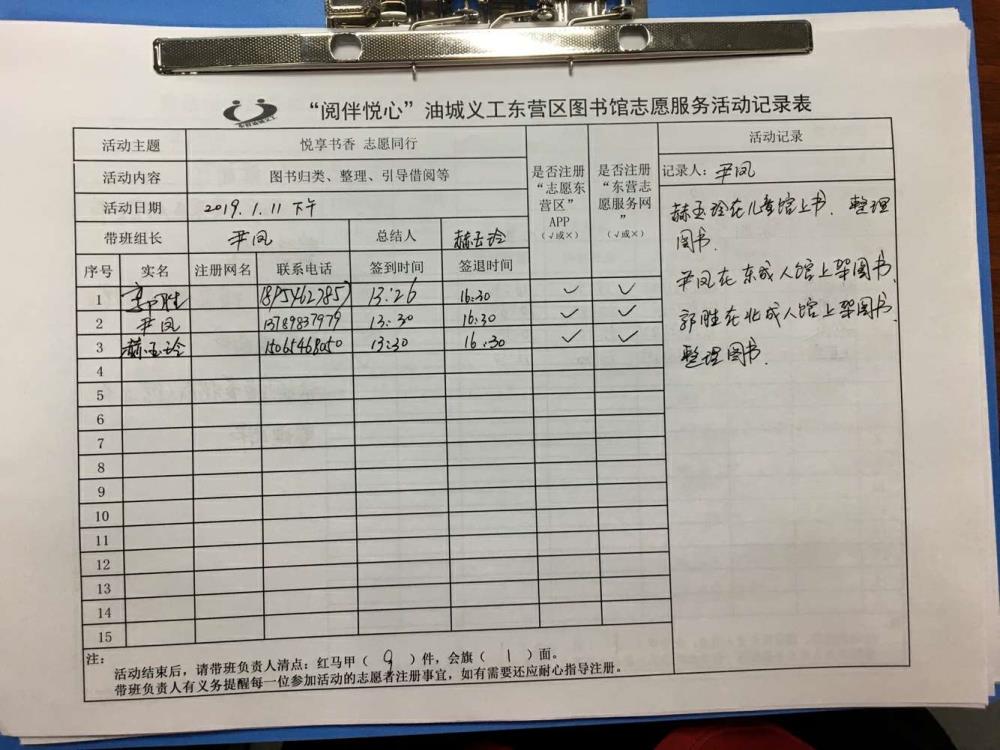 “阅伴悦心”油城义工东营区图书馆志愿服务活动记录表
活动主题 悦享书香 志愿同行
活动内容 图书归类、整理、引导借阅等
活动日期 2019.1.11 下午
带班组长 尹凤 总结人 赫玉玲
序号 实名 注册网名 联系电话 签到时间 签退时间
是否注册
“志愿东
营区”
APP
(√或×)
是否注册
“东营志
愿服务网
”
(√或×)
1 郭胜 13:26 16:30 ✓ ✓
2 尹凤 13789837979 13:30 16:30 ✓ ✓
3 赫玉玲 15065468050 13:30 16:30 ✓ ✓
4
5
6
7
8
9
10
11
12
13
14
15
活动记录
记录人：尹凤
赫玉玲在儿童馆上书、整理
图书.
尹凤在东成人馆上架图书.
郭胜在北成人馆上架图书.
整理图书.
注：
活动结束后，请带班负责人清点：红马甲（ 9 ）件，会旗（ 1 ）面。
带班负责人有义务提醒每一位参加活动的志愿者注册事宜，如有需要还应耐心指导注册。